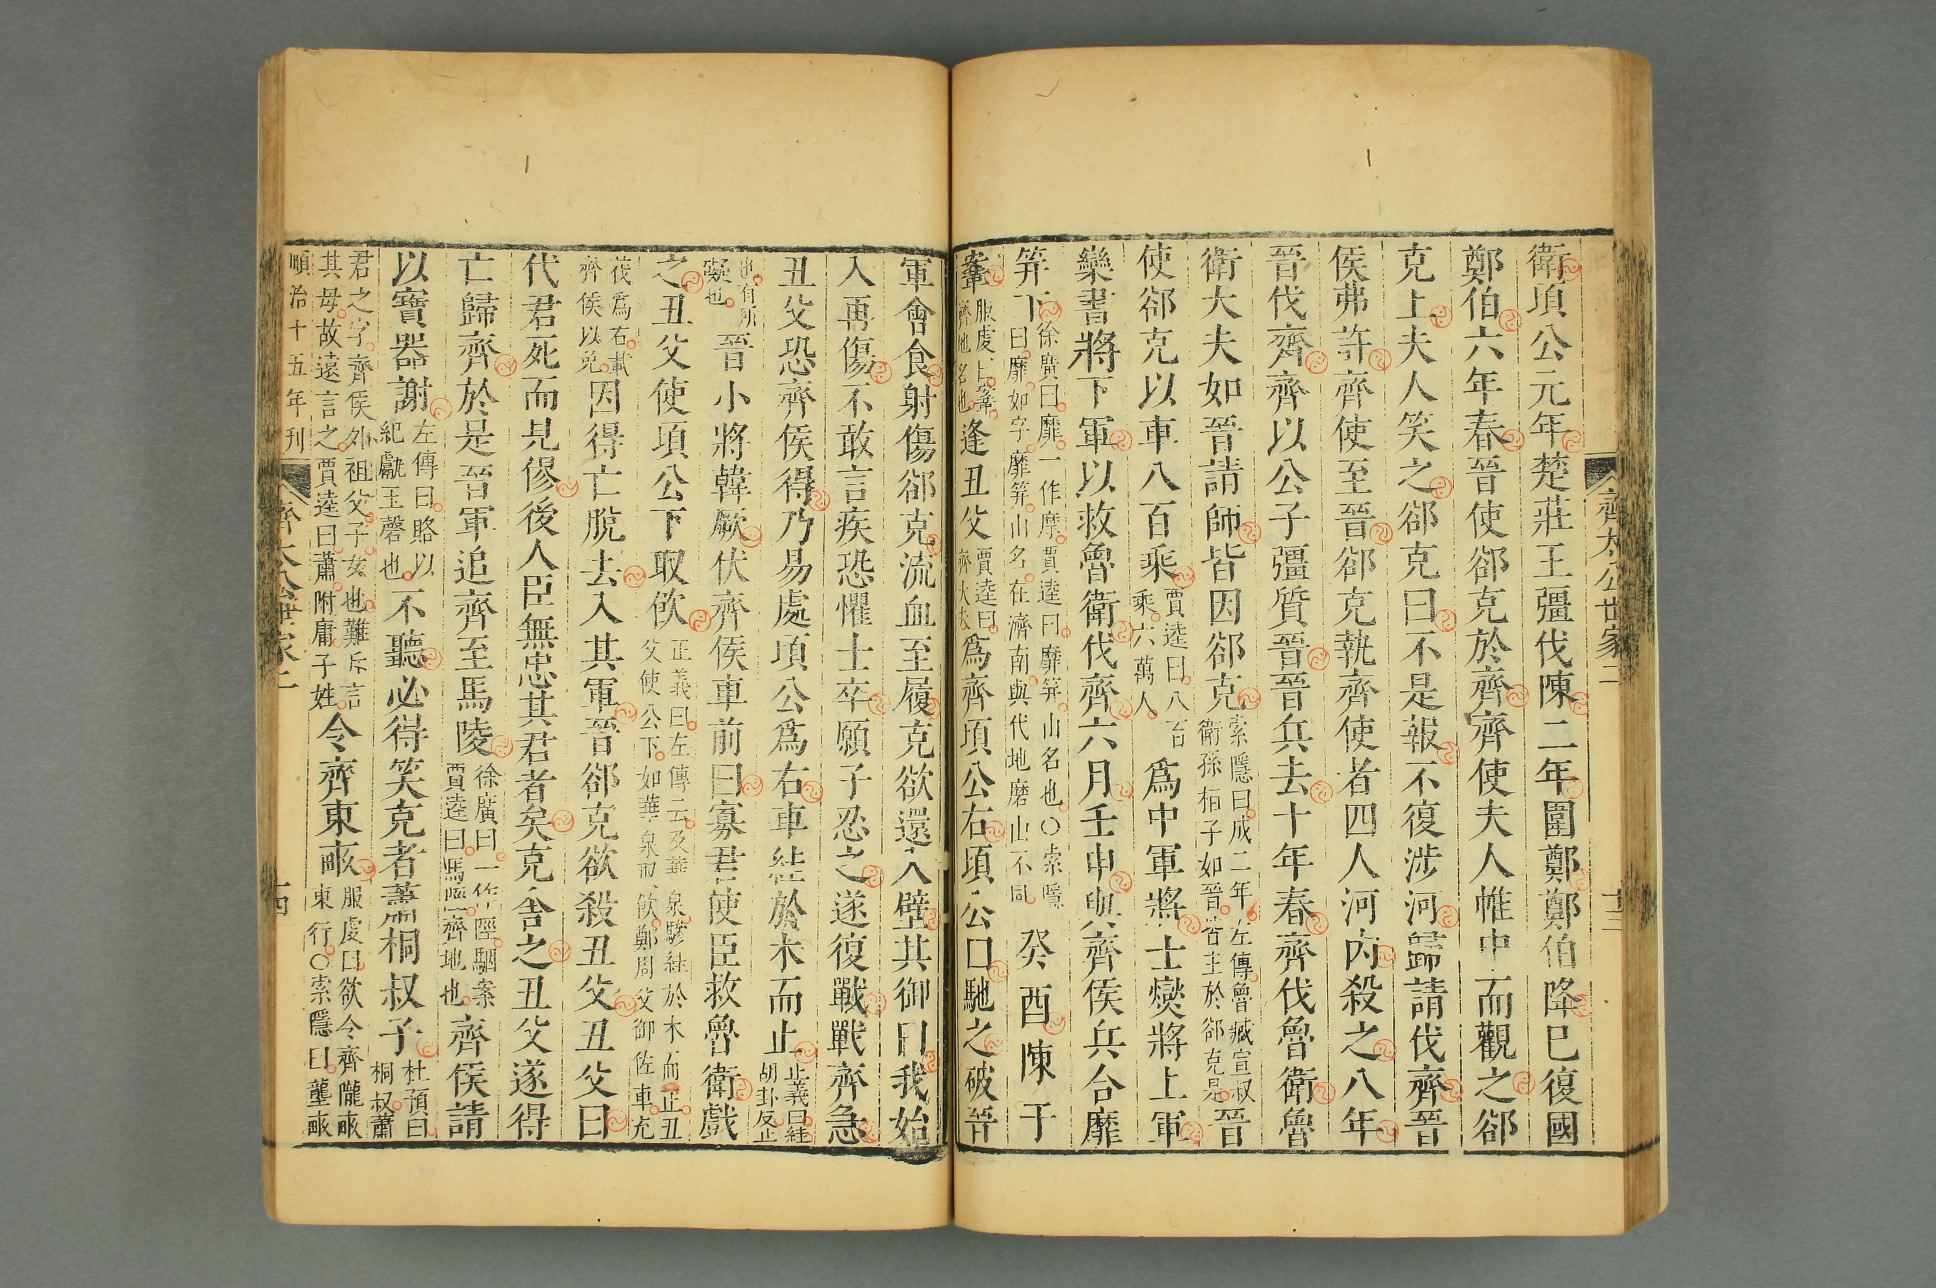 衛頃公元年楚莊王彊伐陳二年圍鄭鄭伯降巳復國
鄭伯六年春晉使郤克於齊齊使夫人帷中而觀之郤
克上夫人笑之郤克曰不是報不復涉河歸請伐齊晉
侯弗許齊使至晉郤克執齊使者四人河內殺之八年
晉伐齊齊以公子彊質晉晉兵去十年春齊伐魯衛魯
衛大夫如晉請師皆因郤克索隱曰成二年左傳魯臧宣叔衛孫桓子如晉皆主於郤克是晉
使郤克以車八百乘賈逵曰八百乘六萬人爲中軍將士燮將上軍
欒書將下軍以救魯衛伐齊六月壬申與齊侯兵合靡
笄下徐廣曰靡一作摩賈逵曰靡笄山名也○索隱曰靡如字靡笄山名在濟南與代地磨山不同癸酉陳于
鞌服虔曰鞌齊地名也逢丑父賈逵曰齊大夫爲齊頃公右頃公曰馳之破晉
齊太公世家二
十三
軍會食射傷郤克流血至履克欲還入壁其御曰我始
入再傷不敢言疾恐懼士卒願子忍之遂復戰戰齊急
丑父恐齊侯得乃易處頃公爲右車絓於木而止正義曰絓胡卦反止
也有所礙也晉小將韓厥伏齊侯車前曰寡君使臣救魯衛戲
之丑父使頃公下取飲正義曰左傳云及華泉驂絓於木而止丑父使公下如華泉取飲鄭周父御佐車宛
茷爲右載齊侯以免因得亡脫去入其軍晉郤克欲殺丑父丑父曰
代君死而見僇後人臣無忠其君者矣克舍之丑父遂得
亡歸齊於是晉軍追齊至馬陵徐廣曰一作陘駰案賈逵曰馬陘齊地也齊侯請
以寶器謝左傳曰賂以紀甗玉磬也不聽必得笑克者蕭桐叔子杜預曰桐叔蕭
君之字齊侯外祖父子女也難斥言其母故遠言之賈逵曰蕭附庸子姓令齊東畝服虔曰欲令齊隴畝東行○索隱曰壟畝
順治十五年刊
齊太公世家二
十四